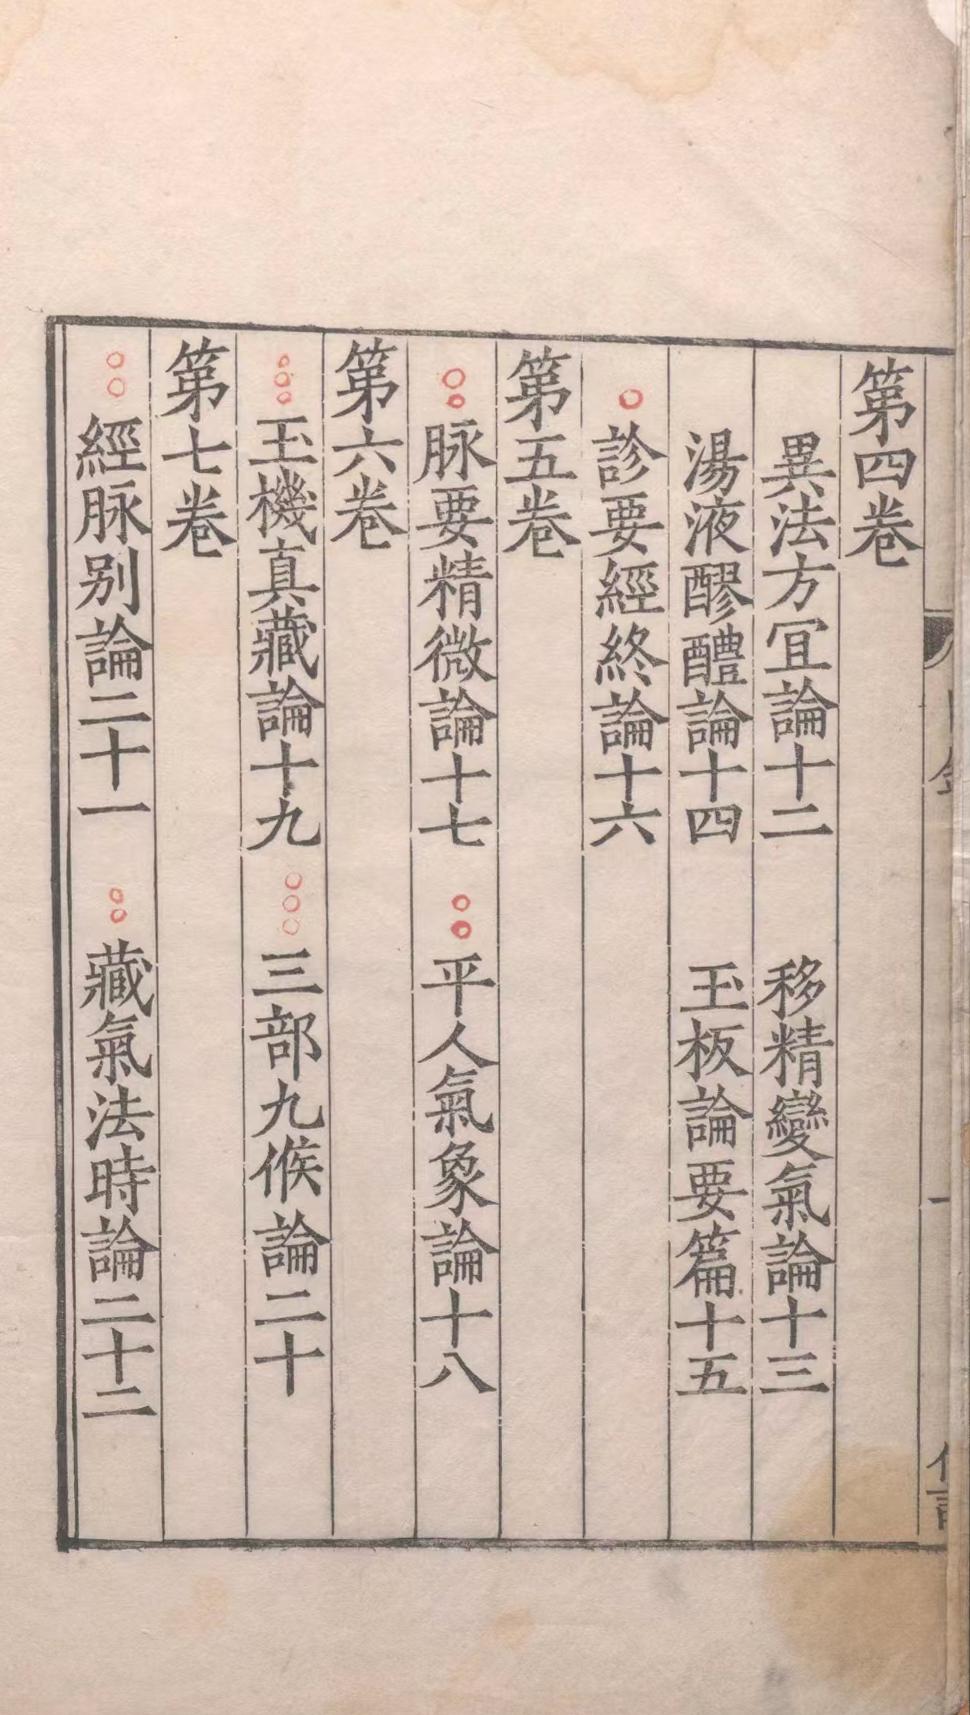 第四卷
異法方冝論十二　移精變氣論十三
湯液醪醴論十四　玉板論要篇十五
診要經終論十六
第五卷
脉要精微論十七　平人氣象論十八
第六卷
玉機真藏論十九　三部九候論二十
第七卷
經脉别論二十一　藏氣法時論二十二